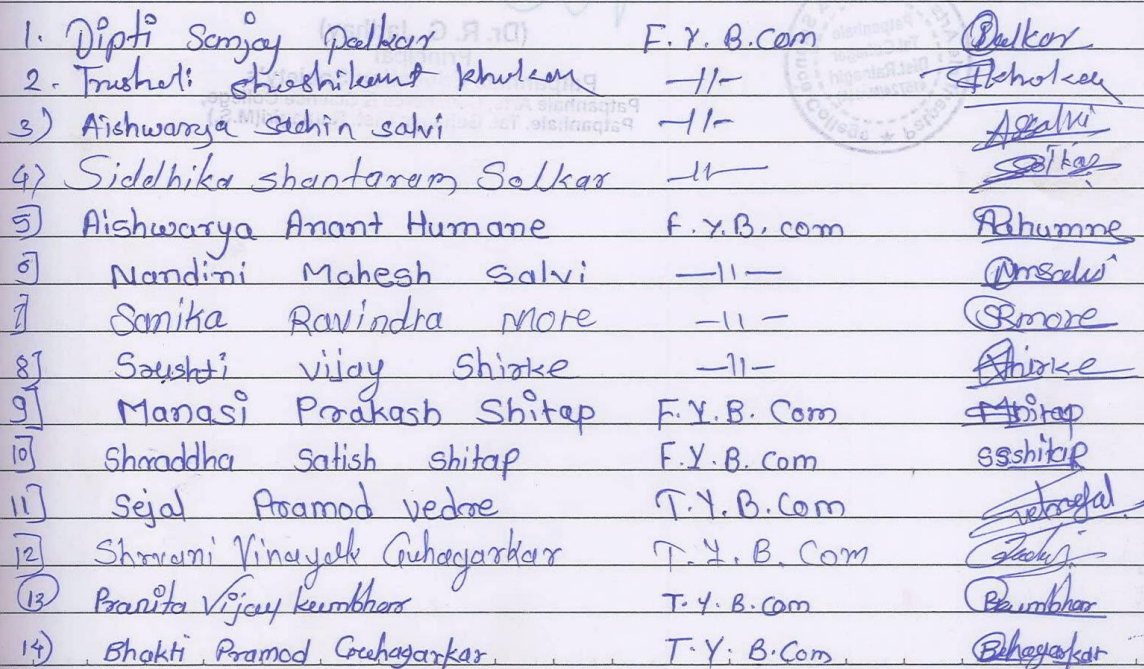 1. Dipti Sanjay Palkar F.Y.B.Com Palkar
2. Trushali Shashikant Khokar -11- Khokar
3) Aishwarya Sachin salvi -11- ASsalvi
4) Siddhika Shantaram Salkar -11- Salkar
5] Aishwarya Anant Humane F.Y.B.com AAhumne
6] Nandini Mahesh Salvi -11- Nmsalvi
7] Sanika Ravindra More -11- SRmore
8] Srushti vijay Shirke -11- Shirke
9] Manasi Prakash Shitap F.Y.B.Com Mhitap
10] Shraddha Satish Shitap F.Y.B.Com ssshitap
11] Sejal Pramod vedre T.Y.B.Com
12] Shrvani Vinayak Guhagarkar T.Y.B.Com
13) Pranita Vijay kumbhar T.Y.B.Com Pkumbhar
14) Bhakti Pramod Guhagarkar T.Y.B.Com Bhagarkar